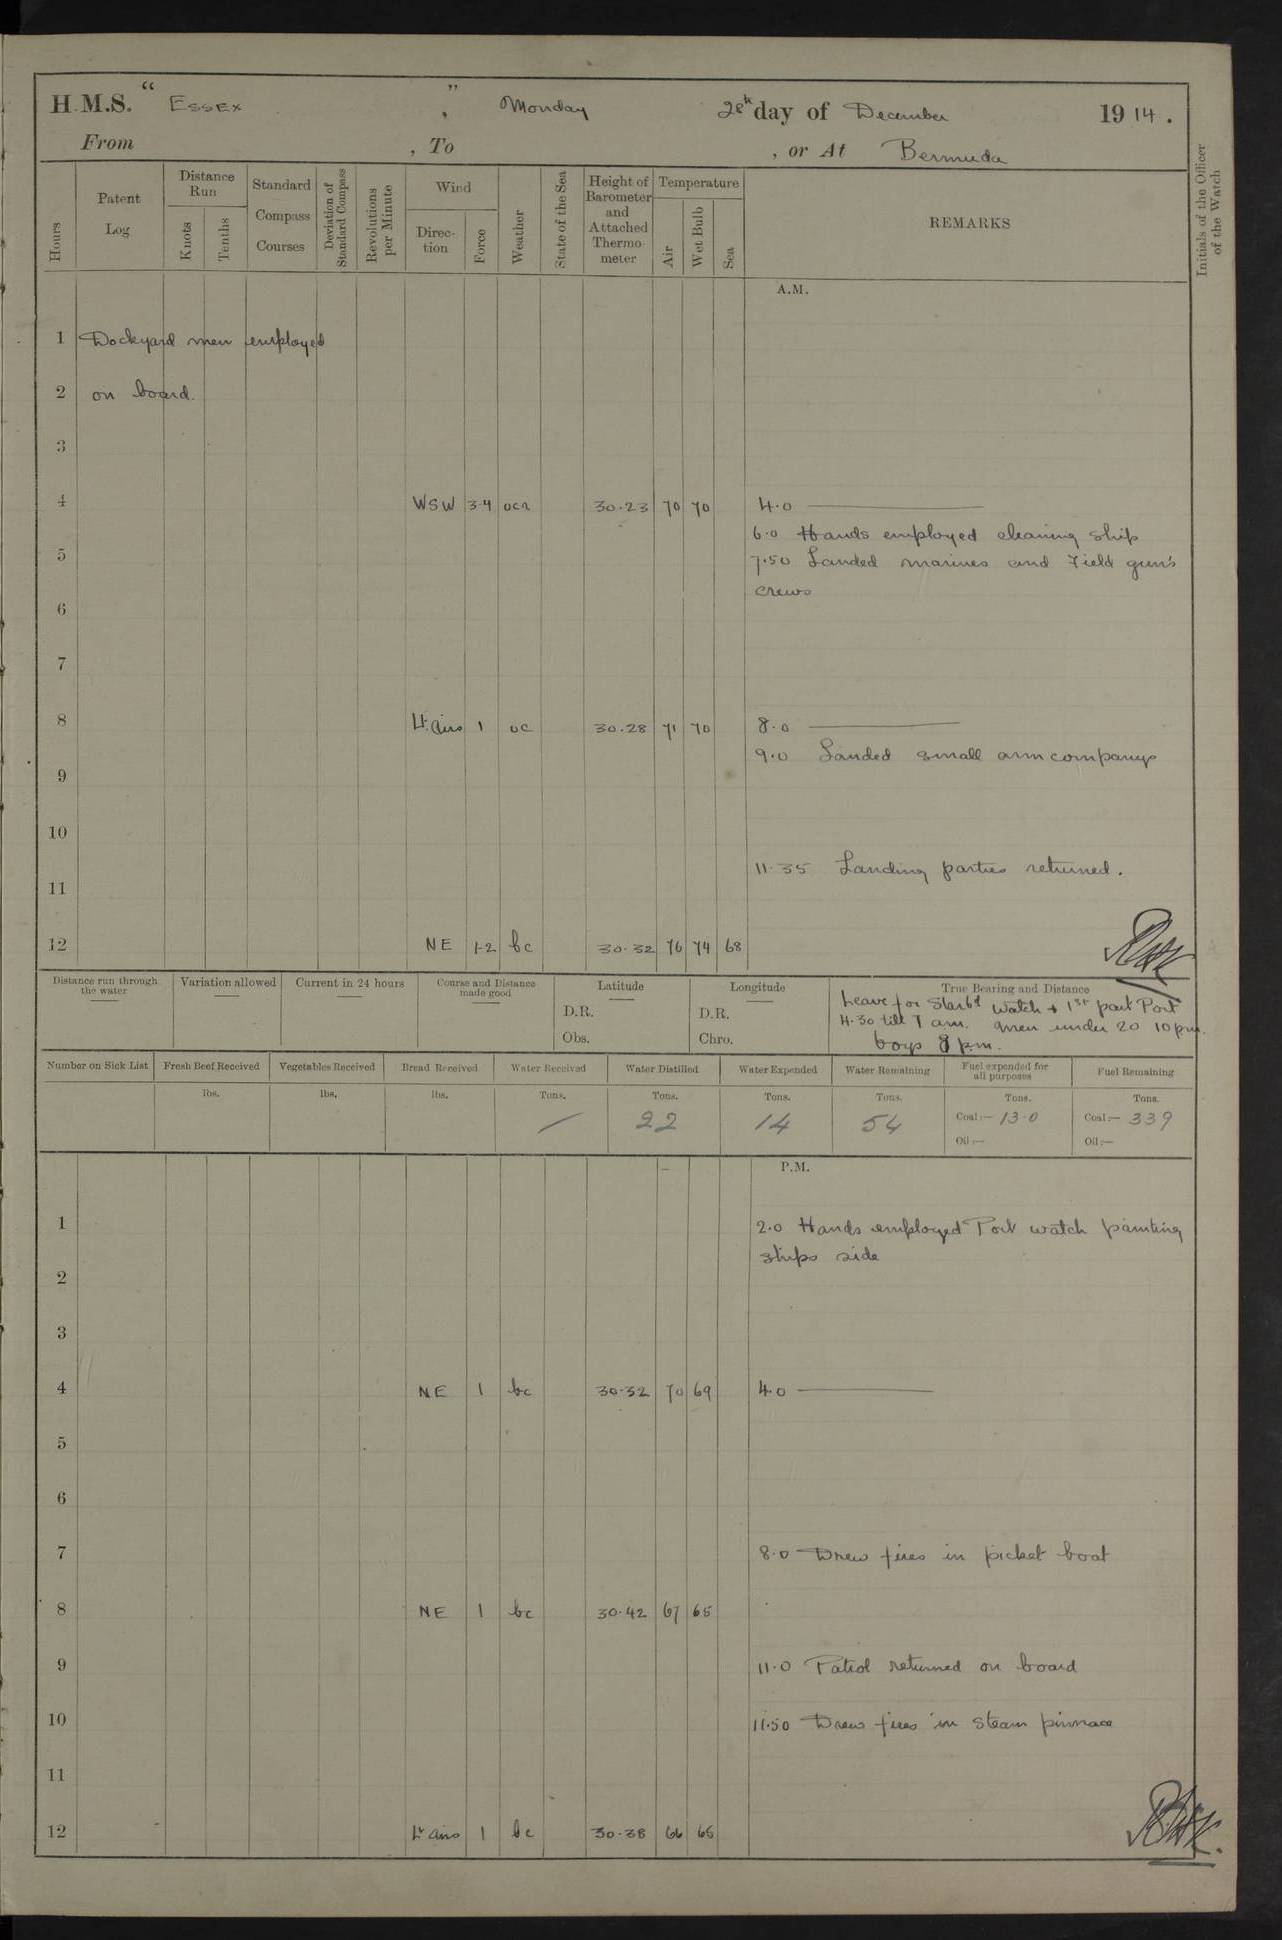 H.M.S. " Essex " , Monday 28th day of December 1914.
From , To , or At Bermuda
Hours
Patent Log
Distance Run
Knots
Tenths
Standard Compass Courses
Deviation of Standard Compass
Revolutions per Minute
Wind
Direction
Force
Weather
State of the Sea
Height of Barometer and Attached Thermometer
Temperature
Air
Wet Bulb
Sea
REMARKS
Initials of the Officer of the Watch
A.M.
1 Dockyard men employed
2 on board.
3
4 WSW 3-4 ocr 30.23 70 70 4.0
6.0 Hands employed cleaning ship
5
7.50 Landed marines and Field gun's
crews
6
7
8 Lt. airs 1 oc 30.28 71 70 8.0
9.0 Landed small arm companys
9
10
11.35 Landing parties returned.
11
12 NE 1-2 bc 30.32 76 74 68
Distance run through the water
Variation allowed
Current in 24 hours
Course and Distance made good
Latitude
D.R.
Obs.
Longitude
D.R.
Chro.
True Bearing and Distance
Leave for Starbd watch + 1st part Port
4.30 till 7 am. men under 20 10 pm.
boys 8 pm.
Number on Sick List
Fresh Beef Received
lbs.
Vegetables Received
lbs.
Bread Received
lbs.
Water Received
Tons.
Water Distilled
Tons.
22
Water Expended
Tons.
14
Water Remaining
Tons.
54
Fuel expended for all purposes
Tons.
Coal:— 13.0
Oil:—
Fuel Remaining
Tons.
Coal:— 339
Oil:—
P.M.
1 2.0 Hands employed Port watch painting
ships side
2
3
4 NE 1 bc 30.32 70 69 4.0
5
6
7 8.0 Drew fires in picket boat
8 NE 1 bc 30.42 67 65
9 11.0 Patrol returned on board
10 11.50 Drew fires in steam pinnace
11
12 Lt airs 1 bc 30.38 66 65